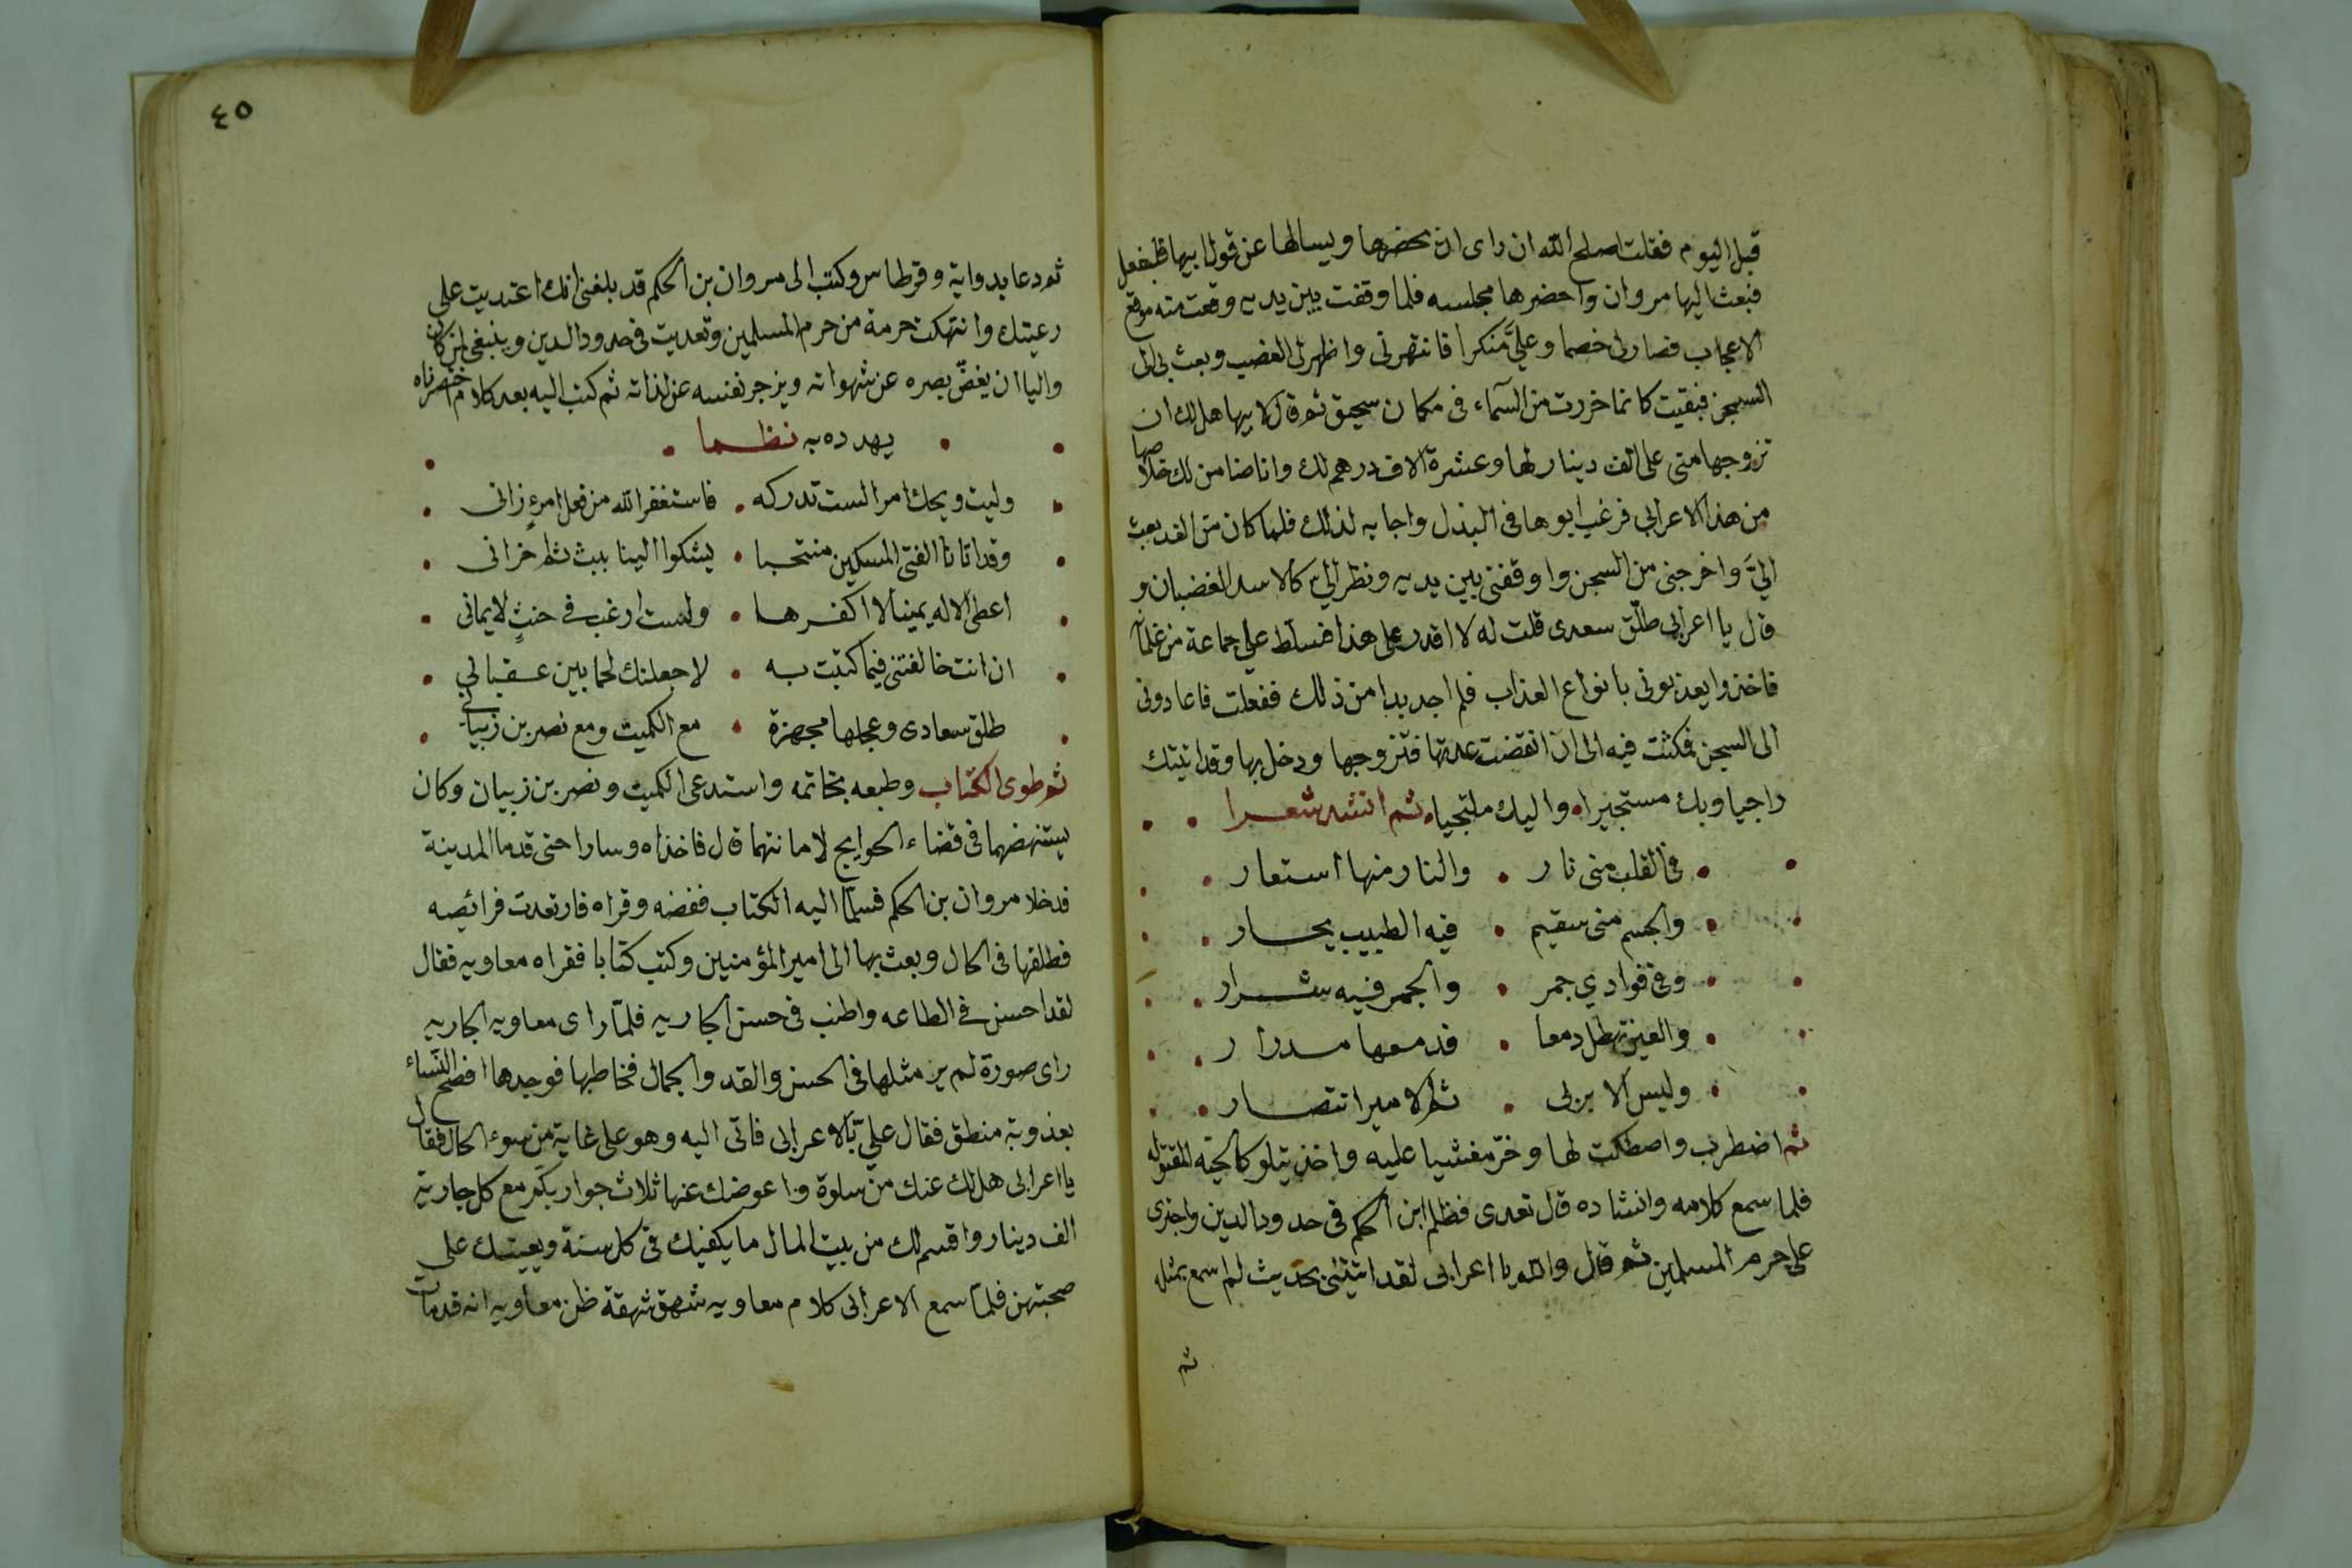 قبل اليوم فقلت اصلح الله ان راى ان يحضرها ويسالها عن قول ابيها فليفعل
فبعث اليها مروان واحضرها مجلسه فلما وقفت بين يديه وقعت منه موقع
الاعجاب فصار لى خصما وعليَّ منكرا فانتهرنى واظهر لى الغضب وبعث بى الى
السجن فبقيت كانما خررت من السمآء فى مكان سحيق ثم قال لابيها هل لك ان
تزوجها منى على الف دينار لها وعشرة الاف درهم لك وانا ضامن لك خلاصها
من هذا الاعرابى فرغب ابوها فى البذل واجابه لذلك فلما كان من الغد بعث
اليَّ واخرجنى من السجن واوقفنى بين يديه ونظر الي كالاسد الغضبان و
قال يا اعرابى طلّق سعدى قلت له لا اقدر على هذا فسلط علي جماعة من غلمانه
فاخذوا يعذبونى بانواع العذاب فلم اجد بدا من ذلك ففعلت فاعادونى
الى السجن فمكثت فيه الى ان انقضت عدتها فتزوجها ودخل بها وقد اتيتك
راجيا وبك مستجيرا واليك ملتجيا ثم انشد شعرا
فى القلب منى نار • والنار منها استعار
والجسم منى سقيم • فيه الطبيب يحار
وفى فوادي جمر • والجمر فيه شرار
والعين تهطل دمعا • فدمعها مدرار
وليس الا بربى • ثم الامير انتصار
ثم اضطرب واصطكت لها وخرّ مغشيا عليه واخذ يتلو كالحيّة المقتوله
فلما سمع كلامه وانشاده قال تعدى فظلم ابن الحكم فى حدود الدين واجترى
على حرم المسلمين ثم قال والله يا اعرابى لقد اتيتنى بحديث لم اسمع بمثله
ثم
٤٥
ثم دعا بدواية وقرطاس وكتب الى مروان بن الحكم قد بلغنى انك اعتديت على
رعيتك وانتهكت حرمة من حرم المسلمين وتعديت فى حدود الدين وينبغى لمن كان
واليا ان يغضّ بصره عن شهواته ويزجر نفسه عن لذاته ثم كتب اليه بعد كلام اختصرناه
يهدده به نظما
وليت ويحك امرا لست تدركه • فاستغفر الله من فعل امرءٍ زانى
وقد اتانا الفتى المسكين منتحبا • يشكوا الينا ببث ثم احزانى
اعطى الاله يمينا لا اكفرها • ولست ارغب فى حنثٍ لايمانى
ان انت خالفتنى فيما كتبت به • لاجعلنك لحما بين عقبانى
طلق سعادى وعجلها مجهزة • مع الكميت ومع نصر بن زبيانى
ثم طوى الكتاب وطبعه بخاتمه واستدعى الكميت ونصر بن زبيان وكان
يستنهضهما فى قضاء الحوايج لامانتهما قال فاخذاه وسارا حتى قدما المدينة
فدخلا مروان بن الحكم فسلما اليه الكتاب ففضه وقراه فارتعدت فرائصه
فطلقها فى الحال وبعث بها الى امير المؤمنين وكتب كتابا فقراه معاويه فقال
لقد احسن فى الطاعه واطنب فى حسن الجاريه فلمّا راى معاويه الجاريه
راى صورة لم ير مثلها فى الحسن والقد والجمال فخاطبها فوجدها افصح النساء
بعذوبة منطق فقال عليّ بالاعرابى فاتى اليه وهو على غاية من سوء الحال فقال
يا اعرابى هل لك عنك من سلوة واعوضك عنها ثلاث جوار بكر مع كل جارية
الف دينار واقسم لك من بيت المال ما يكفيك فى كل سنة ويعينك على
صحبتهن فلما سمع الاعرابى كلام معاويه شهق شهقة ظن معاويه انه قد مات